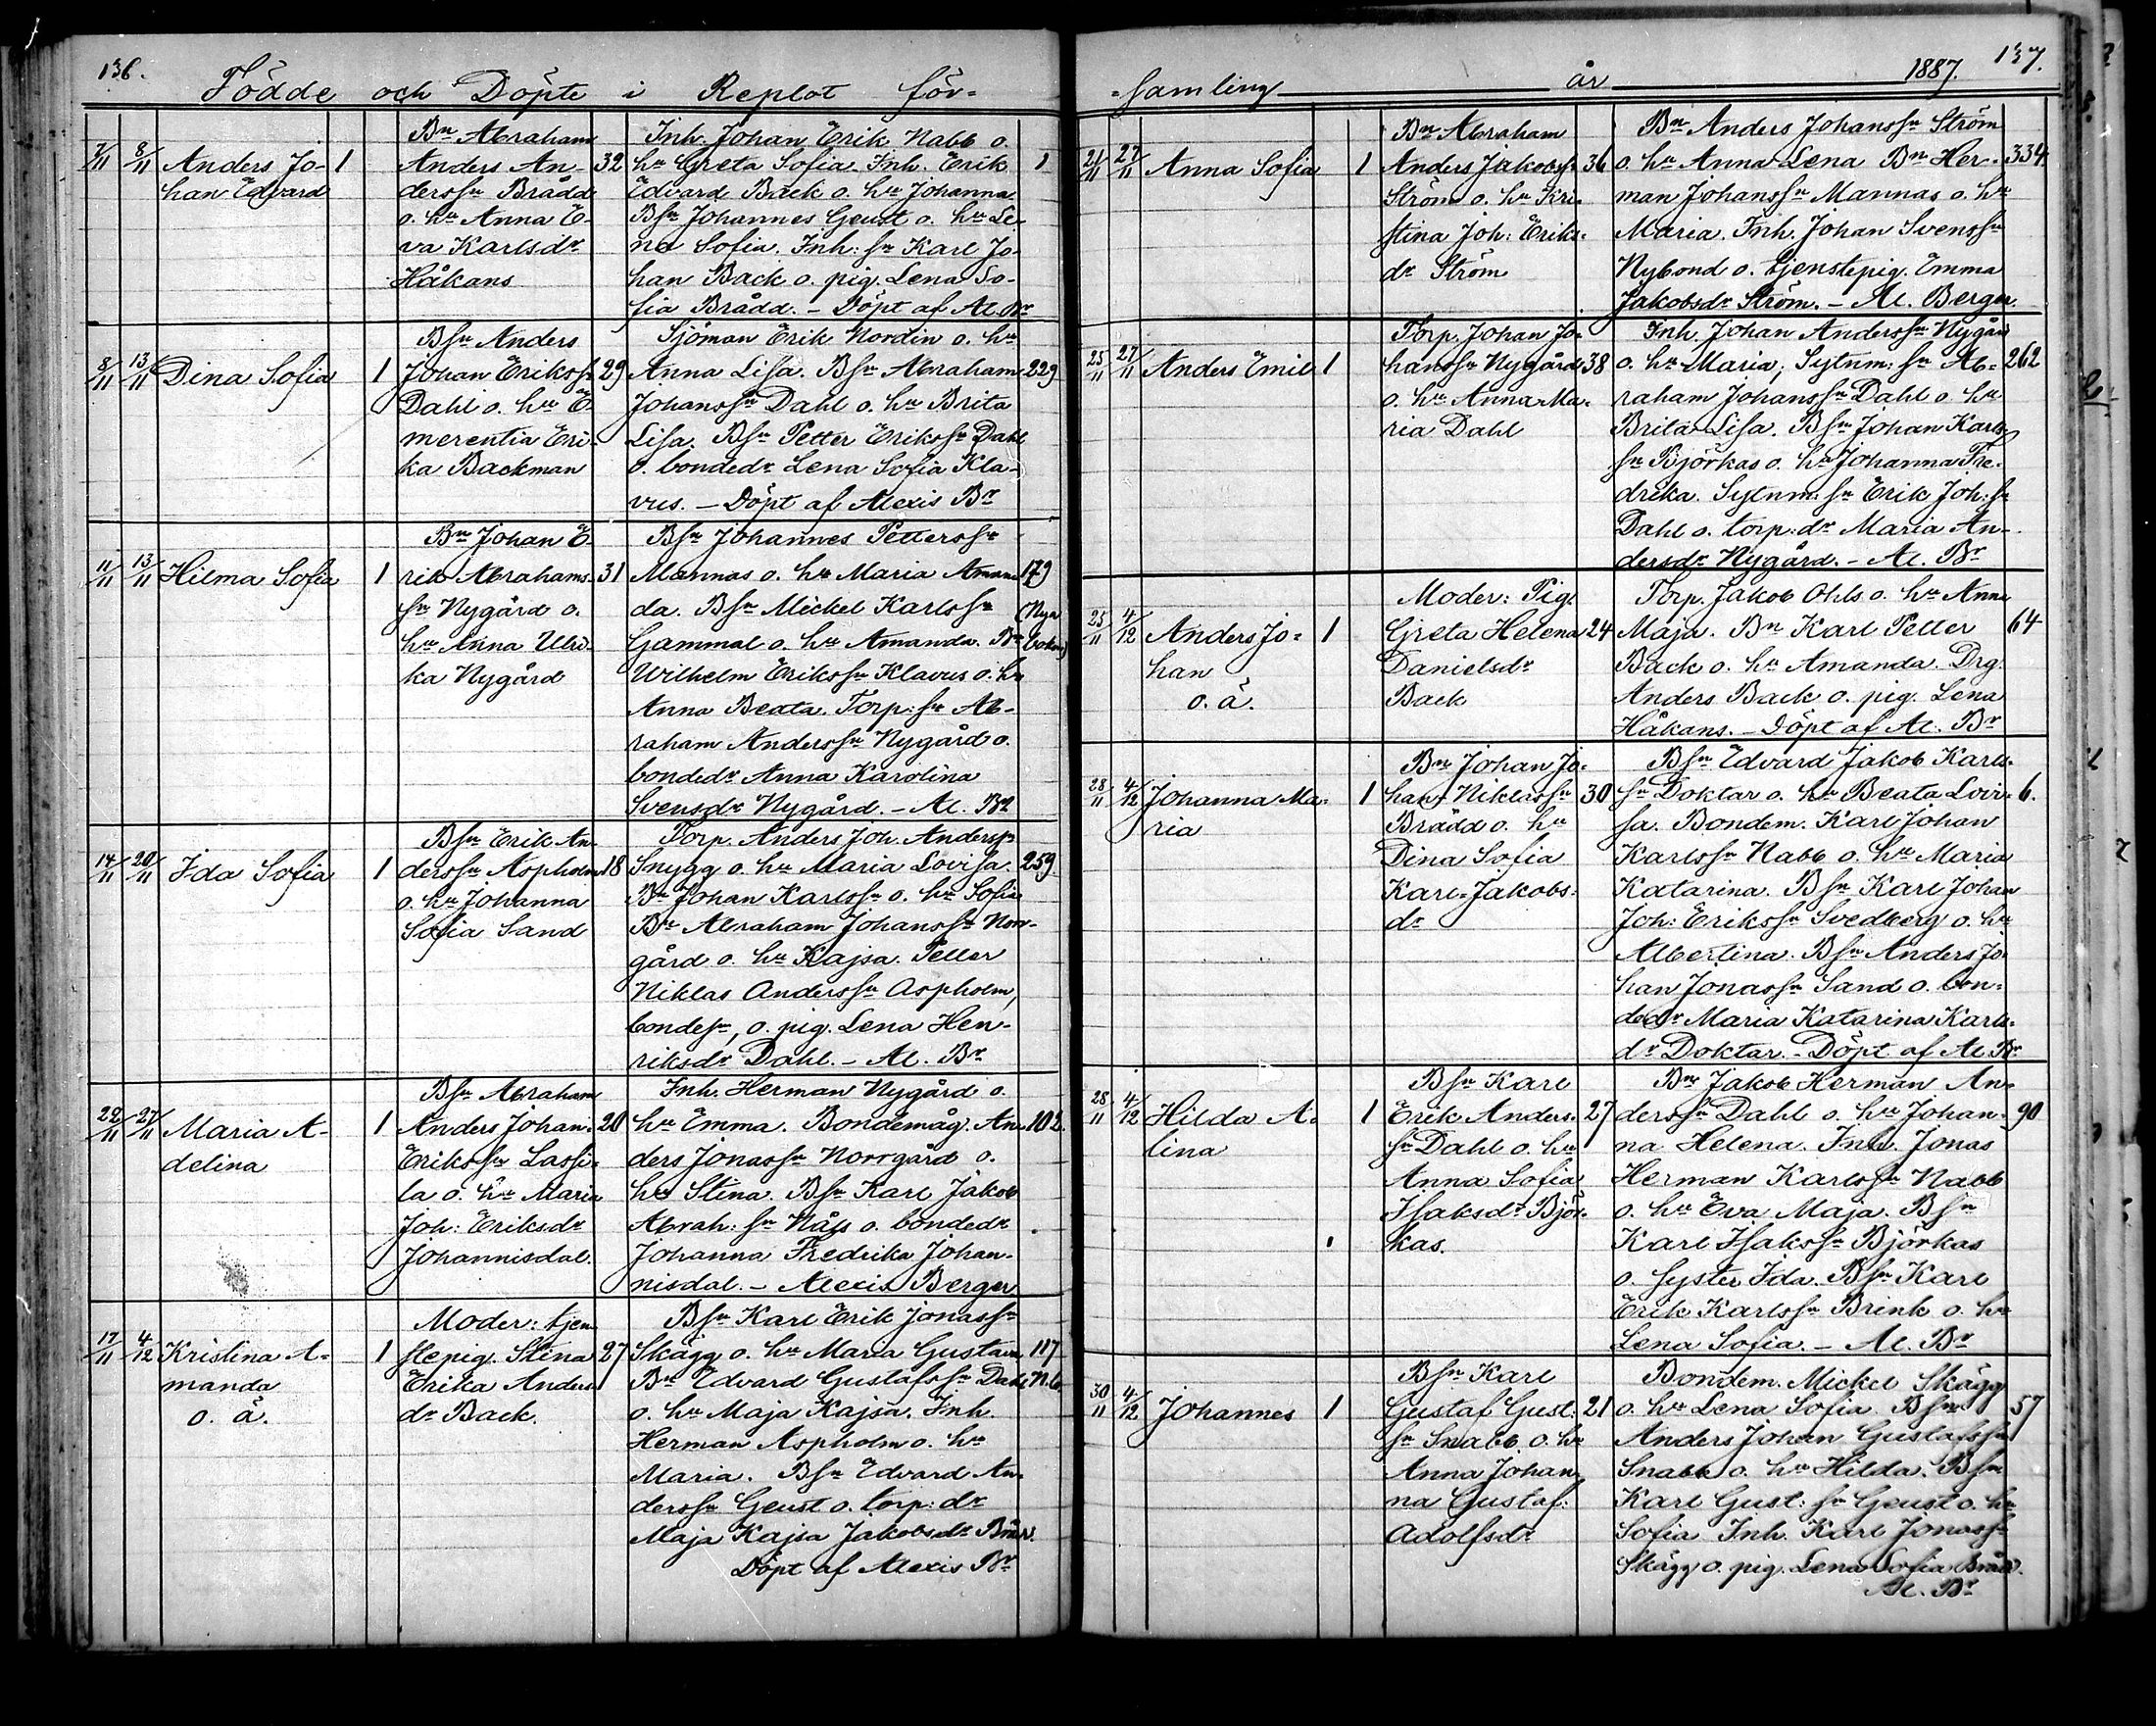 136.
Födde och Döpte i Replot för-
7/11 8/11 Anders Jo- 1
han Edvard
Bn Abraham
Anders An- 32
derssn Brådd
o. hu Anna E-
va Karlsdr
Håkans
Inh. Johan Erik Nabb o.
hu Greta Sofia. Inh. Erik 1
Edvard Back o. hu Johanna
Bsn Johannes Geust o. hu Le-
na Sofia. Inh: sn Karl Jo-
han Back o. pig. Lena So-
fia Brådd. – Döpt af Al. Br
8/11 13/11 Dina Sofia 1
Bsn Anders
Johan Erikss. 29
Dahl o. hu E-
merentia Eri-
ka Backman
Sjöman Erik Nordin o. hu
Anna Lisa. Bsn Abraham 229
Johanssn Dahl o. hu Brita
Lisa. Bsn Petter Erikssn Dahl
o. bondedr Lena Sofia Kla-
vus. – Döpt af Alexis Br
11/11 13/11 Hilma Sofia 1
Bn Johan E-
rik Abrahams- 31
sn Nygård o.
hu Anna Ulri-
ka Nygård
Bsn Johannes Petterssn
Mannas o. hu Maria Aman- 179
da. Bsn Mickel Karlssn (Nya
Gammal o. hu Amanda. Bn boken)
Wilhelm Erikssn Klavus o. hu
Anna Beata. Torp: sn Ab-
raham Anderssn Nygård o.
bondedr Anna Karolina
Svensdr Nygård. – Al. Br
14/11 20/11 Ida Sofia 1
Bsn Erik An-
derssn Aspholm 18
o. hu Johanna
Sofia Sand
Torp. Anders Joh. Anderssn
Snygg o. hu Maria Lovisa. 259.
Bn Johan Karlssn o. hu Sofia
Bn Abraham Johanssn Norr-
gård o. hu Kajsa. Petter
Niklas Anderssn Aspholm,
bondesn, o. pig. Lena Hen-
riksdr Dahl. – Al. Br
22/11 27/11 Maria A- 1
delina
Bsn Abraham
Anders Johan- 20
Erikssn Lassi-
la o. hu Maria
Joh: Eriksdr
Johannisdal.
Inh. Herman Nygård o.
hu Emma. Bondemåg. An- 102.
ders Jonassn Norrgård o.
hu Stina. Bsn Karl Jakob
Abrah: sn Nåjs o. bondedr
Johanna Fredrika Johan-
nisdal. – Alexis Berger
17/11 4/12 Kristina A- 1
manda
o. ä.
Moder: tjen-
stepig. Stina 27
Erika Anders
dr Back.
Bsn Karl Erik Jonassn
Skägg o. hu Maria Gustava 117
Bn Edvard Gustafssn Dahl N.b.
o. hu Maja Kajsa. Inh.
Herman Aspholm o. hu
Maria. Bsn Edvard An-
derssn Geust o. torp: dr
Maja Kajsa Jakobsdr Brådd.
Döpt af Alexis Br
137.
-samling år 1887.
21/11 27/11 Anna Sofia 1
Bn Abraham
Anders Jakobss. 36
Ström o. hu Kri-
stina Joh: Eriks-
dr Ström
Bn Anders Johanssn Ström
o. hu Anna Lena Bn Her- 334
man Johanssn Mannas o. hu
Maria. Inh. Johan Svenssn
Nybond o. tjenstepig. Emma
Jakobsdr Ström. – Al. Berger.
25/11 27/11 Anders Emil 1
Torp. Johan Jo-
hanssn Nygård 38
o. hu Anna Ma-
ria Dahl
Inh. Johan Anderssn Nygård
o. hu Maria; Sytnm: sn Ab- 262
raham Johanssn Dahl o. hu
Brita Lisa. Bsn Johan Karls-
sn Björkas o. hu Johanna Fre-
drika. Sytnm: sn Erik Joh: sn
Dahl o. torp: dr Maria An-
dersdr Nygård. – Al. Br
25/11 4/12 Anders Jo- 1
han
o. ä.
Moder: Pig.
Greta Helena 24
Danielsdr
Back
Torp. Jakob Ohls o. hu Anna
Maja. Bn Karl Petter 64
Back o. hu Amanda. Drg.
Anders Back o. pig. Lena
Håkans. – Döpt af Al. Br
28/11 4/12 Johanna Ma- 1
ria
Bn Johan Jo-
han Niklassn 30
Brådd o. hu
Dina Sofia
Karl-Jakobs-
dr
Bsn Edvard Jakob Karls-
sn Doktar o. hu Beata Lovi- 6.
sa. Bondem. Karl Johan
Karlssn Nabb o. hu Maria
Katarina. Bsn Karl Johan
Joh: Erikssn Svedberg o. hu
Albertina. Bsn Anders Jo-
han Jonassn Sand o. bon-
dedr Maria Katarina Karls-
dr Doktar. – Döpt af Al. Br
28/11 4/12 Hilda A- 1
lina
Bsn Karl
Erik Anders- 27
sn Dahl o. hu
Anna Sofia
Isaksdr Björ-
kas.
Bn Jakob Herman An-
derssn Dahl o. hu Johan- 90
na Helena. Inh. Jonas
Herman Karlssn Nabb
o. hu Eva Maja. Bsn
Karl Isakssn Björkas
o. syster Ida. Bsn Karl
Erik Karlssn Brink o. hu
Lena Sofia. – Al. Br
30/11 4/12 Johannes 1
Bsn Karl
Gustaf Gust: 21
sn Snabb o. hu
Anna Johan-
na Gustaf-
Adolfsdr
Bondem. Mickel Skägg
o. hu Lena Sofia. Bsn 57
Anders Johan Gustafssn
Snabb o. hu Hilda. Bsn
Karl Gust: sn Geust o. hu
Sofia. Inh. Karl Jonassn
Skägg o. pig. Lena Sofia Brådd.
Al. Br